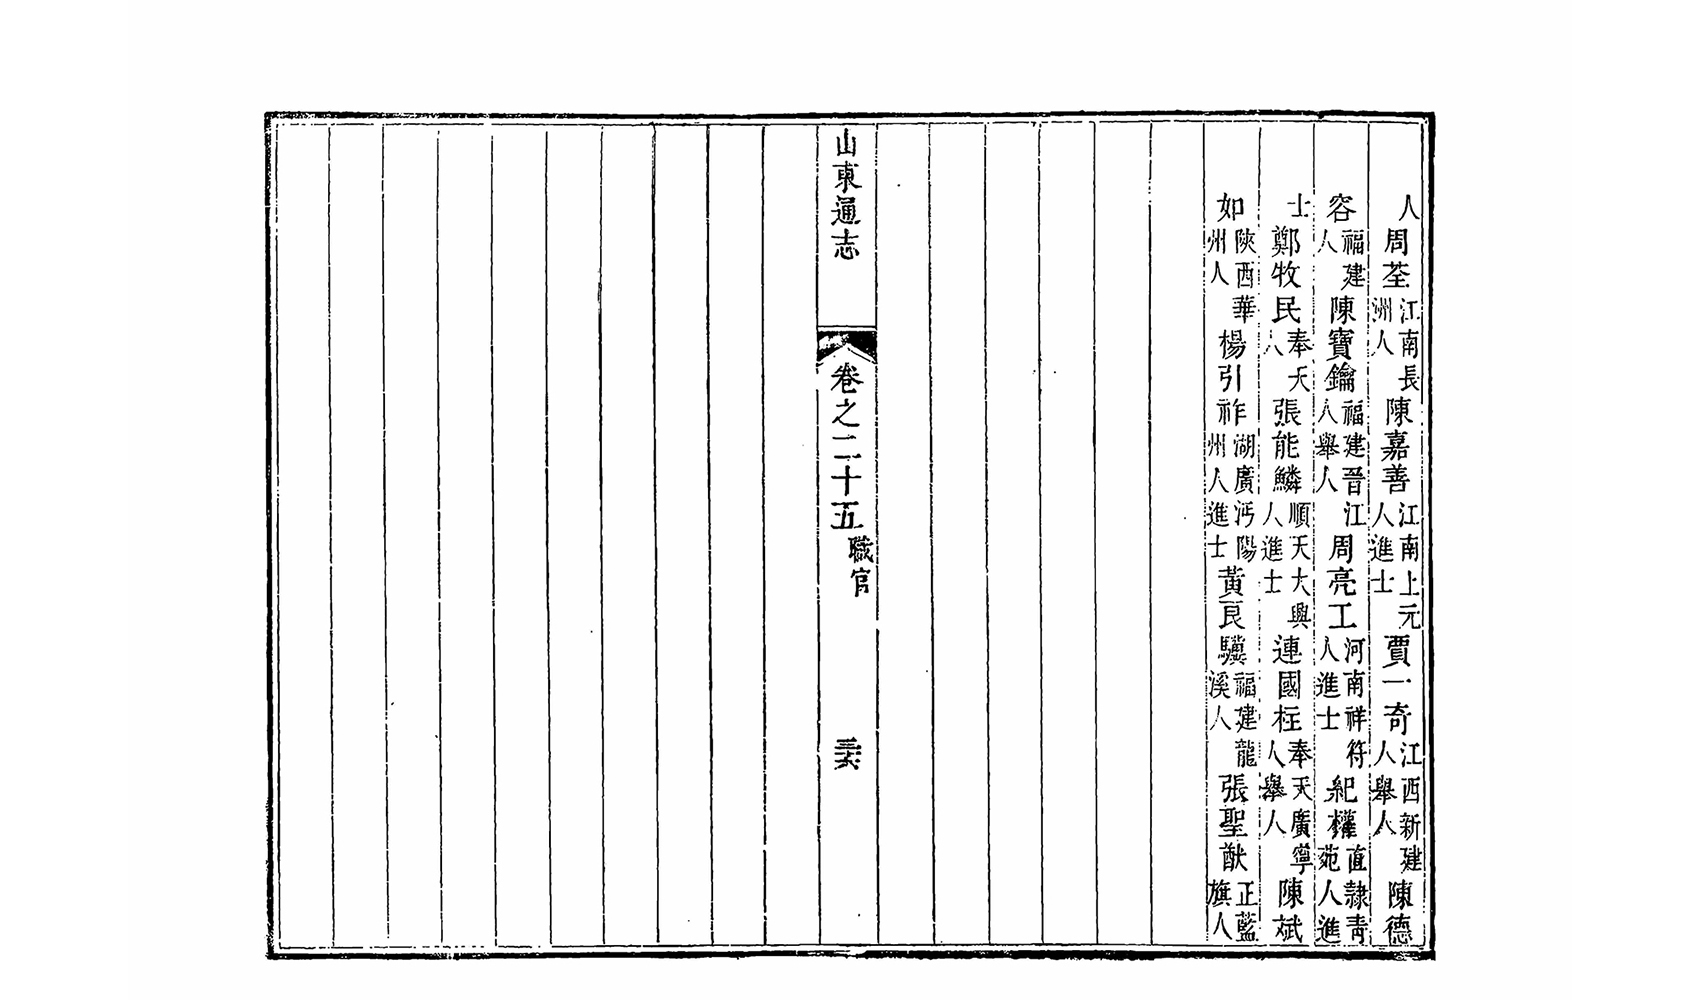 人周荃江南長洲人陳嘉善江南上元人進士賈一奇江西新建人舉人陳德
容福建人陳寶鑰福建晋江人舉人周亮工河南祥符人進士紀權直隸青苑人進
士鄭牧民奉天人張能鱗順天大興人進士連國柱奉天廣寧人舉人陳斌
如陝西華州人楊引祚湖廣沔陽州人進士黃艮驥福建龍溪人張聖猷正藍旗人
山東通志 卷之二十五 職官 三十六